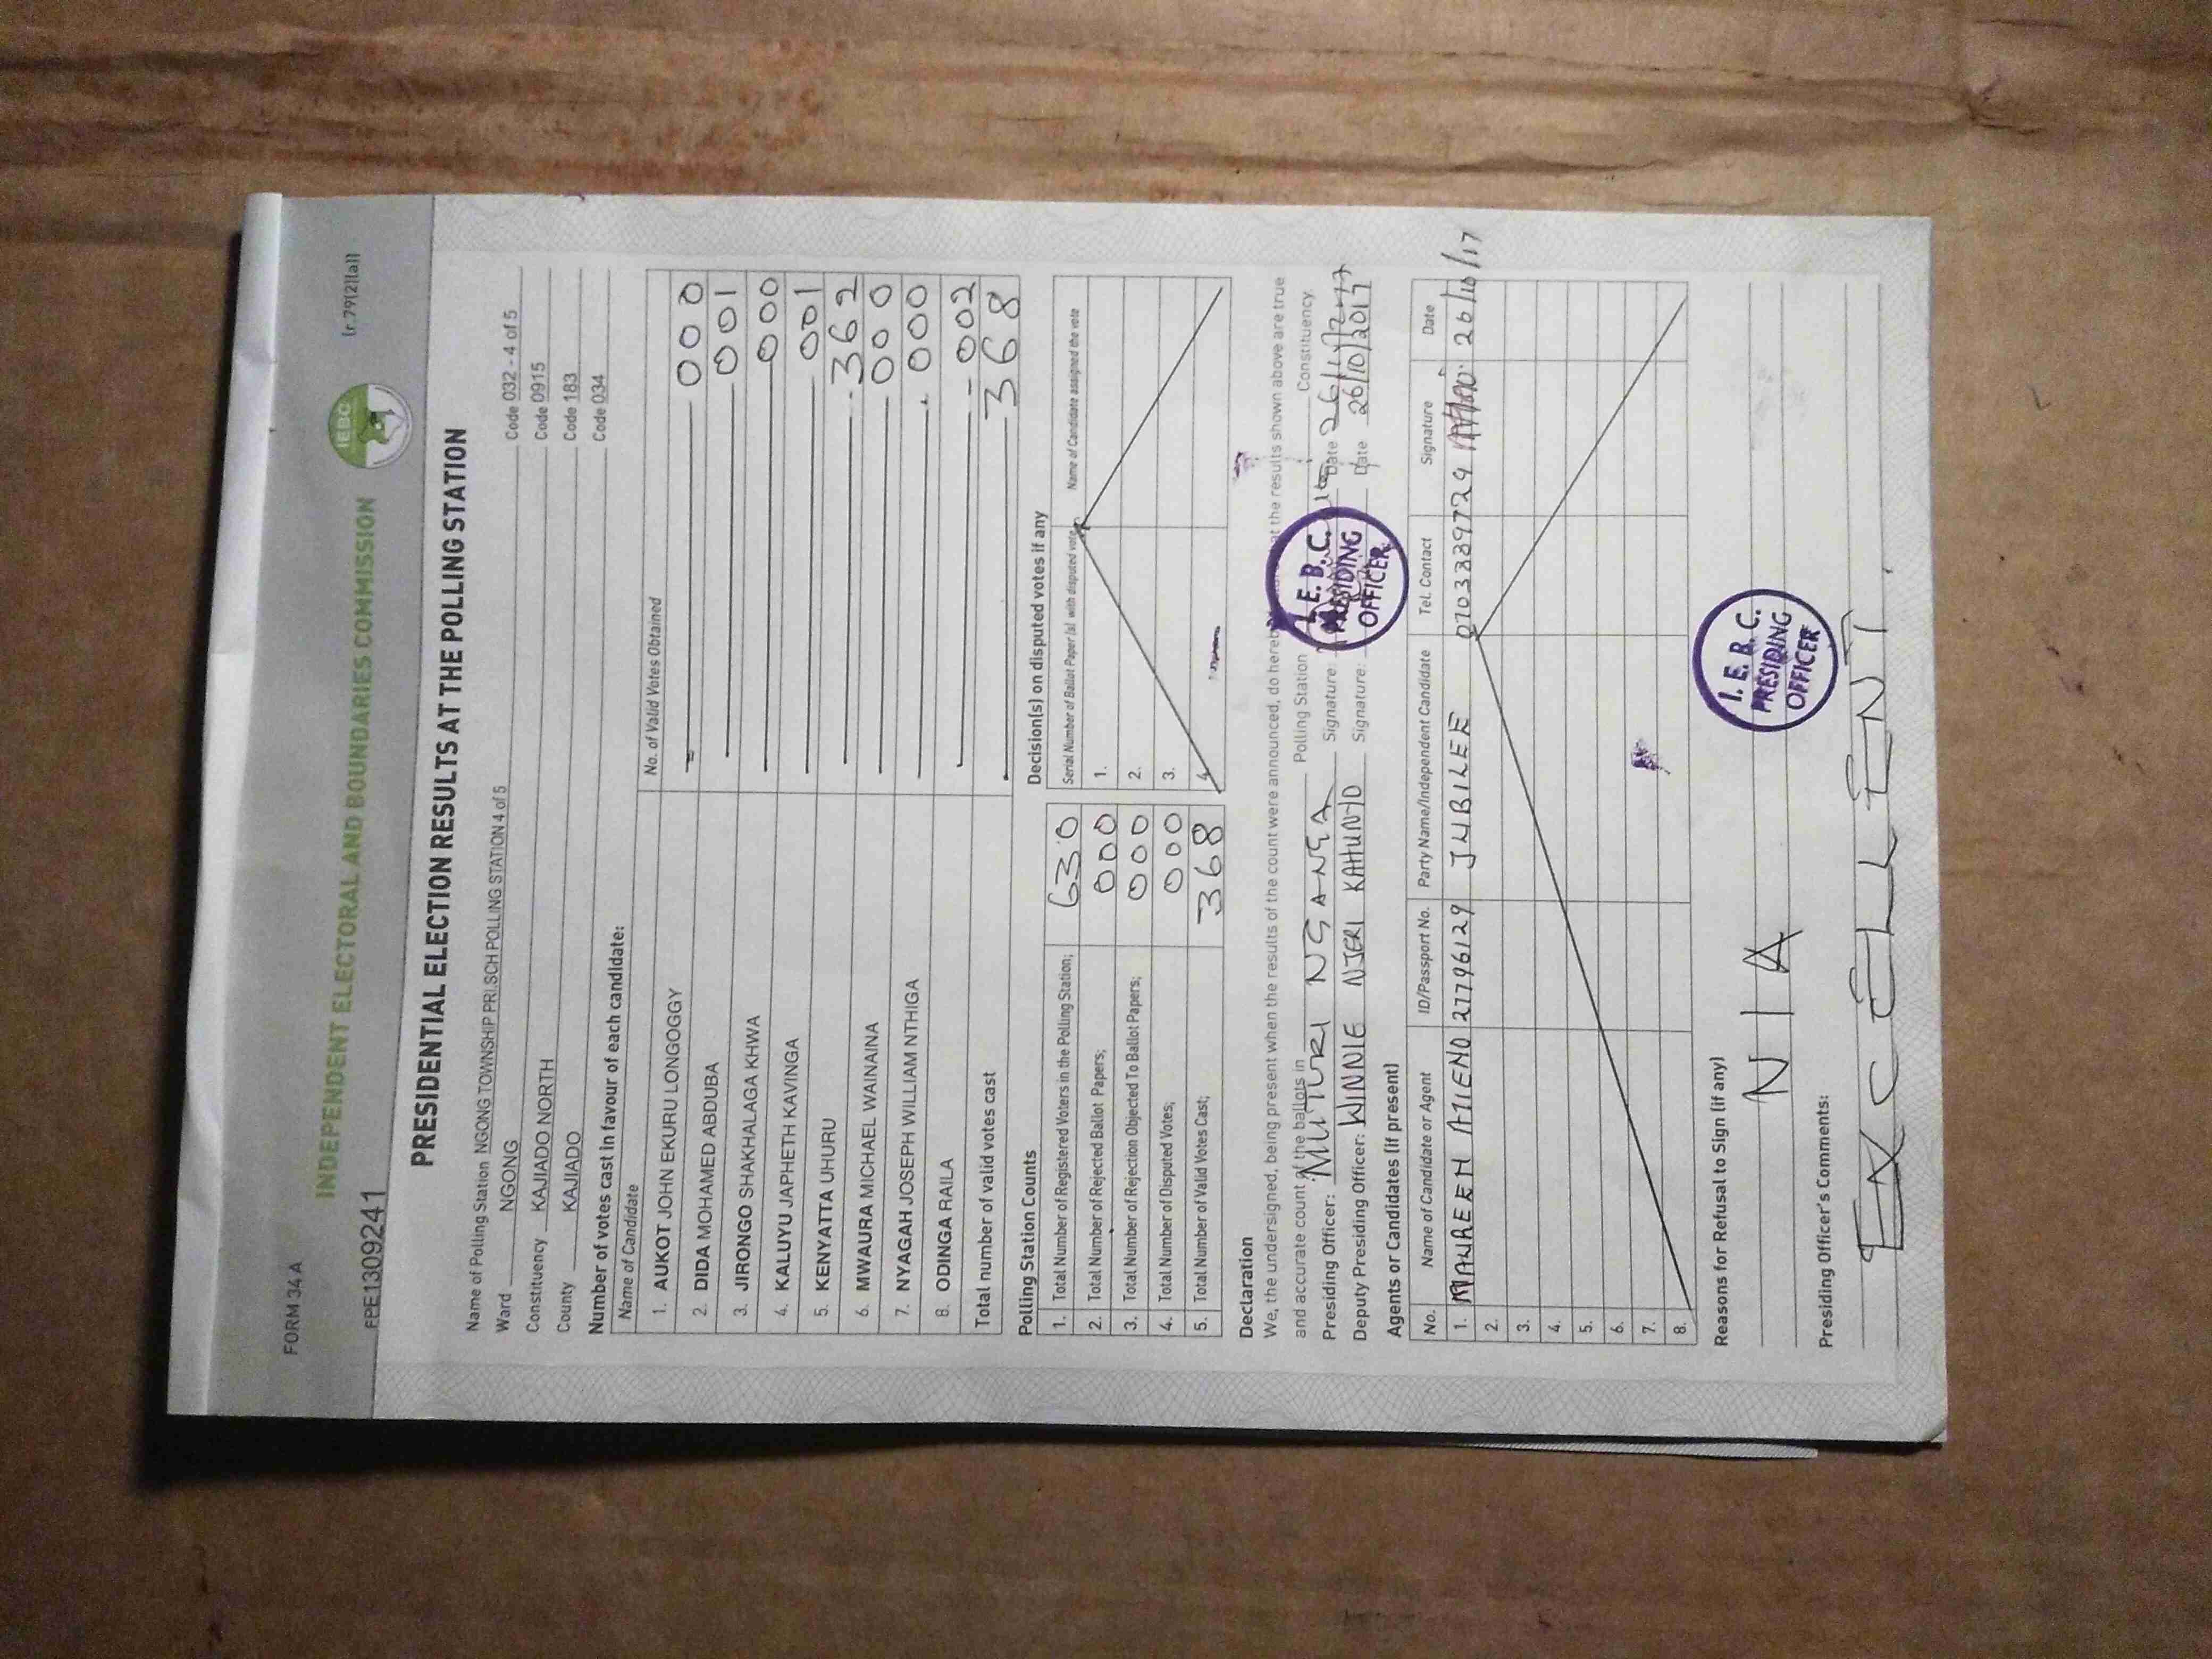 FORM 34 A
(r.79(2)(a))
INDEPENDENT ELECTORAL AND BOUNDARIES COMMISSION
IEBC
EPE1309241
PRESIDENTIAL ELECTION RESULTS AT THE POLLING STATION
Name of Polling Station NGONG TOWNSHIP PRI.SCH POLLING STATION 4 of 5 Code 032 - 4 of 5
Ward NGONG Code 0915
Constituency KAJIADO NORTH Code 183
County KAJIADO Code 034
Number of votes cast in favour of each candidate:
Name of Candidate No. of Valid Votes Obtained
1. AUKOT JOHN EKURU LONGOGGY 000
2. DIDA MOHAMED ABDUBA 001
3. JIRONGO SHAKHALAGA KHWA 000
4. KALUYU JAPHETH KAVINGA 001
5. KENYATTA UHURU 362
6. MWAURA MICHAEL WAINAINA 000
7. NYAGAH JOSEPH WILLIAM NTHIGA 000
8. ODINGA RAILA 002
Total number of valid votes cast 368
Polling Station Counts
1. Total Number of Registered Voters in the Polling Station; 630
2. Total Number of Rejected Ballot Papers; 000
3. Total Number of Rejection Objected To Ballot Papers; 000
4. Total Number of Disputed Votes; 000
5. Total Number of Valid Votes Cast; 368
Decision(s) on disputed votes if any
Serial Number of Ballot Paper(s) with disputed vote Name of Candidate assigned the vote
1.
2.
3.
4.
Declaration
We, the undersigned, being present when the results of the count were announced, do hereby that the results shown above are true
and accurate count of the ballots in Polling Station Constituency.
Presiding Officer: MUTURI NGANGA Signature: Date
Deputy Presiding Officer: WINNIE NJERI KAHUNYO Signature: Date 26/10/2017
I. E. B. C.
PRESIDING
OFFICER
Agents or Candidates (if present)
No. Name of Candidate or Agent ID/Passport No. Party Name/Independent Candidate Tel. Contact Signature Date
1. MAUREEN ATIENO 27796129 JUBILEE 0703339729 26/10/17
2.
3.
4.
5.
6.
7.
8.
Reasons for Refusal to Sign (if any)
N / A
I. E. B. C.
PRESIDING
OFFICER
Presiding Officer's Comments:
EXCELLENT.